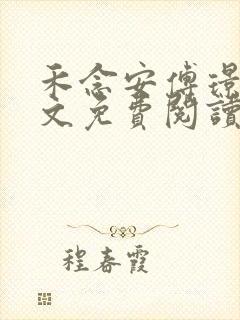 禾念安傅璟
文免費閱讀
程春霞